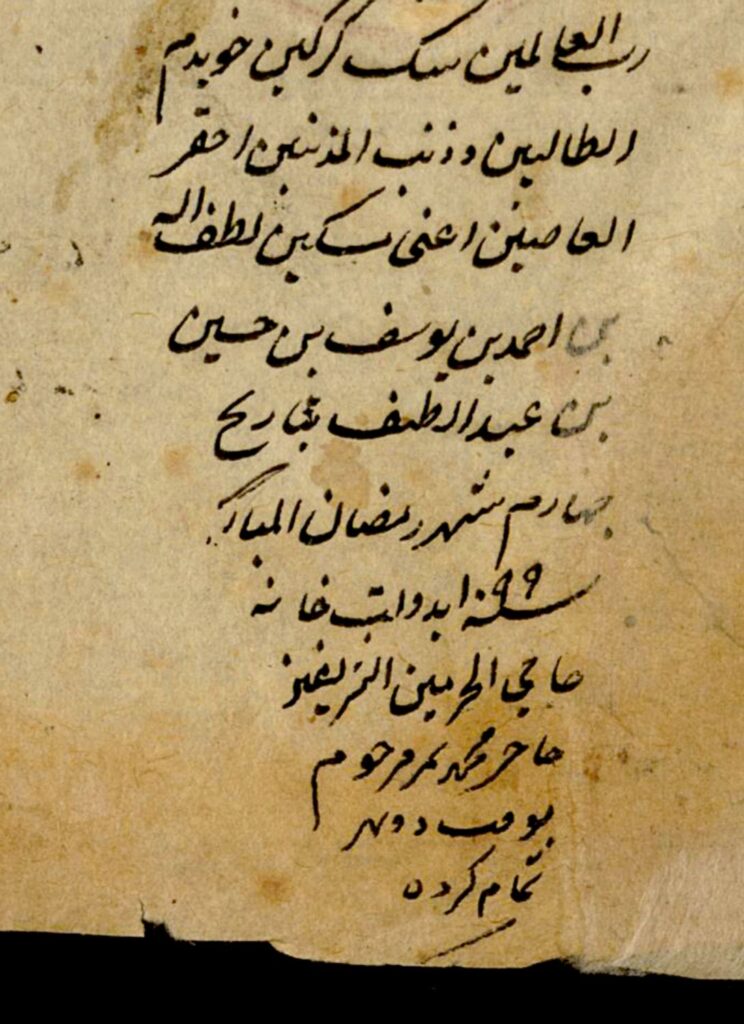 رب العالمین سک کرکین خویدم
الطالبین و ذنب المذنبین احقر
العاصین اعنی مسکین لطف الله
بن احمد بن یوسف بن حسین
بن عبد الطیف بتاریخ
چهارم شهر رمضان المبارک
سنه ۱۰۹۹ بدولت خانه
حاجی الحرمین الشریفین
محمد مرحوم
بوقت دوپهر
تمام کرده